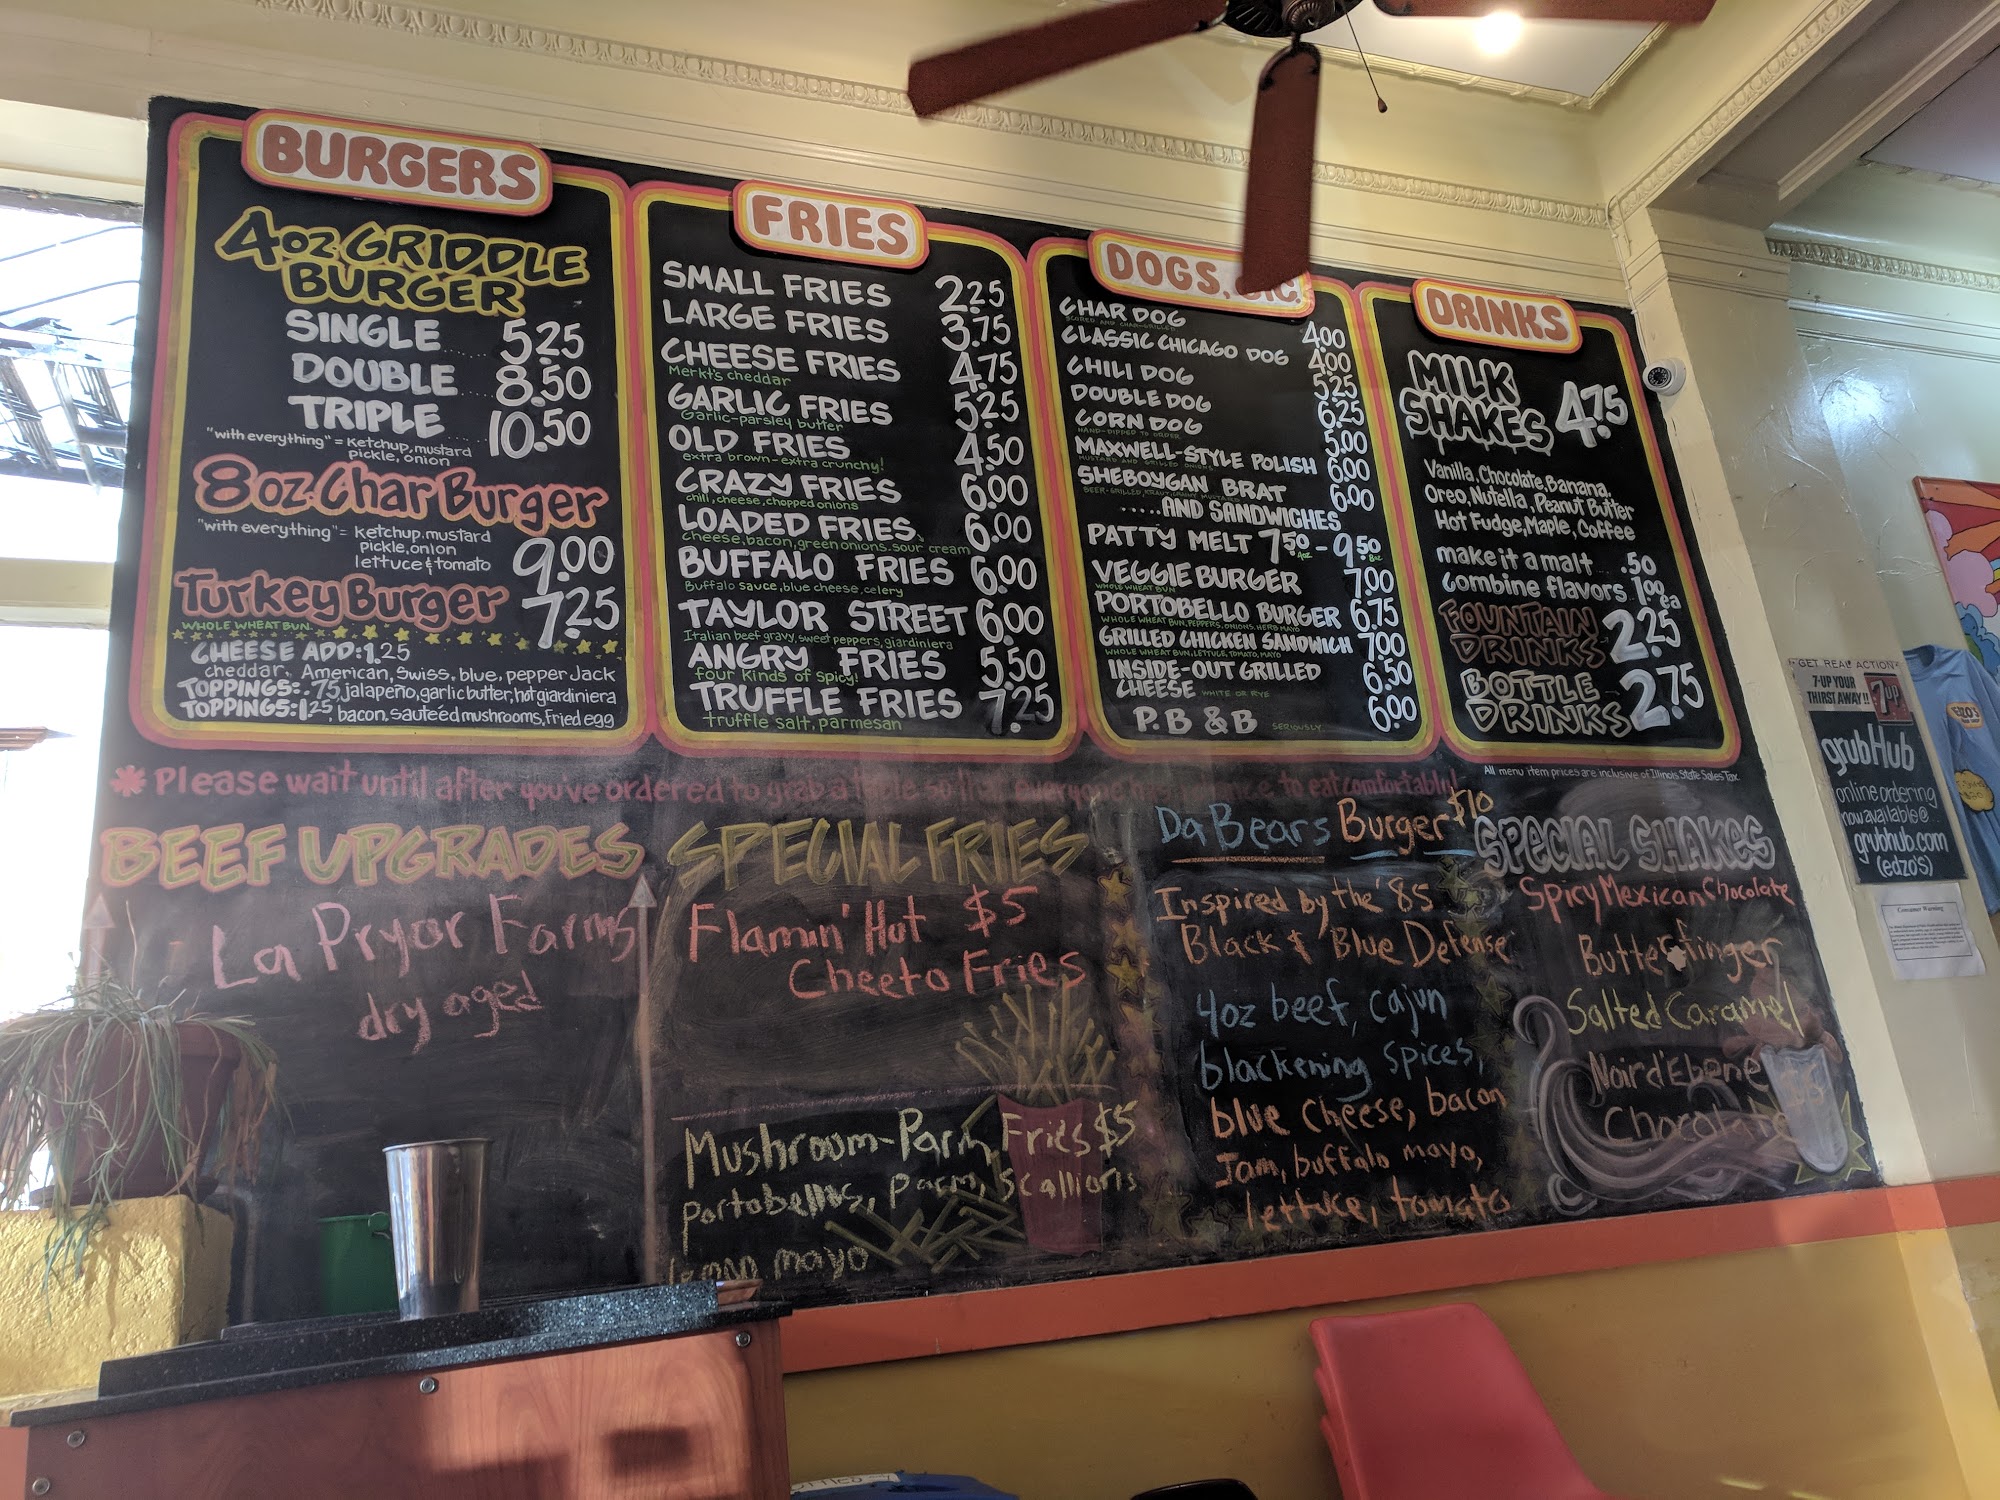 BURGERS
4oz GRIDDLE
BURGER
SINGLE 5.25
DOUBLE 8.50
TRIPLE 10.50
"with everything" = ketchup, mustard
pickle, onion
8oz Char Burger
"with everything" = ketchup, mustard
pickle, onion
lettuce & tomato 9.00
Turkey Burger 7.25
WHOLE WHEAT BUN
CHEESE ADD: 1.25
cheddar, American, Swiss, blue, pepper Jack
TOPPINGS: .75, jalapeño, garlic butter, hot giardiniera
TOPPINGS: 1.25, bacon, sauteéd mushrooms, fried egg
FRIES
SMALL FRIES 2.25
LARGE FRIES 3.75
CHEESE FRIES 4.75
Merkt's cheddar
GARLIC FRIES 5.25
Garlic-parsley butter
OLD FRIES 4.50
extra brown - extra crunchy!
CRAZY FRIES 6.00
chili, cheese, chopped onions
LOADED FRIES 6.00
cheese, bacon, green onions, sour cream
BUFFALO FRIES 6.00
Buffalo sauce, blue cheese, celery
TAYLOR STREET 6.00
Italian beef gravy, sweet peppers, giardiniera
ANGRY FRIES 5.50
four kinds of spicy!
TRUFFLE FRIES 7.25
truffle salt, parmesan
DOGS,
CHAR DOG 4.00
SCORED AND CHAR-GRILLED
CLASSIC CHICAGO DOG 4.00
CHILI DOG 5.25
DOUBLE DOG 6.25
CORN DOG 5.00
HAND-DIPPED TO ORDER
MAXWELL-STYLE POLISH 6.00
MUSTARD AND GRILLED ONIONS
SHEBOYGAN BRAT 6.00
.....AND SANDWICHES
PATTY MELT 7.50 - 9.50
4oz 8oz
VEGGIE BURGER 7.00
WHOLE WHEAT BUN
PORTOBELLO BURGER 6.75
WHOLE WHEAT BUN, PEPPERS, ONIONS, HERB MAYO
GRILLED CHICKEN SANDWICH 7.00
WHOLE WHEAT BUN, LETTUCE, TOMATO, MAYO
INSIDE-OUT GRILLED
CHEESE WHITE OR RYE 6.50
P.B & B SERIOUSLY 6.00
DRINKS
MILK
SHAKES 4.75
Vanilla, Chocolate, Banana,
Oreo, Nutella, Peanut Butter
Hot Fudge, Maple, Coffee
make it a malt .50
combine flavors 1.00 ea
FOUNTAIN
DRINKS 2.25
BOTTLE
DRINKS 2.75
All menu item prices are inclusive of Illinois State Sales Tax
* Please wait until after you've ordered to grab a table so that everyone has a chance to eat comfortably!
BEEF UPGRADES
La Pryor Farms
dry aged
SPECIAL FRIES
Flamin' Hot $5
Cheeto Fries
Mushroom-Parm Fries $5
portabellos, parm, scallions
lemon mayo
Da Bears Burger $10
Inspired by the '85
Black & Blue Defense
4oz beef, cajun
blackening spices,
blue cheese, bacon
Jam, buffalo mayo,
lettuce, tomato
SPECIAL SHAKES
Spicy Mexican Chocolate
Butterfinger
Salted Caramel
Noir d'Ebene
Chocolate
GET REAL ACTION
7-UP YOUR
THIRST AWAY!!
7up
grubHub
online ordering
now available @...
grubhub.com
(edzo's)
Consumer Warning
EDZO'S